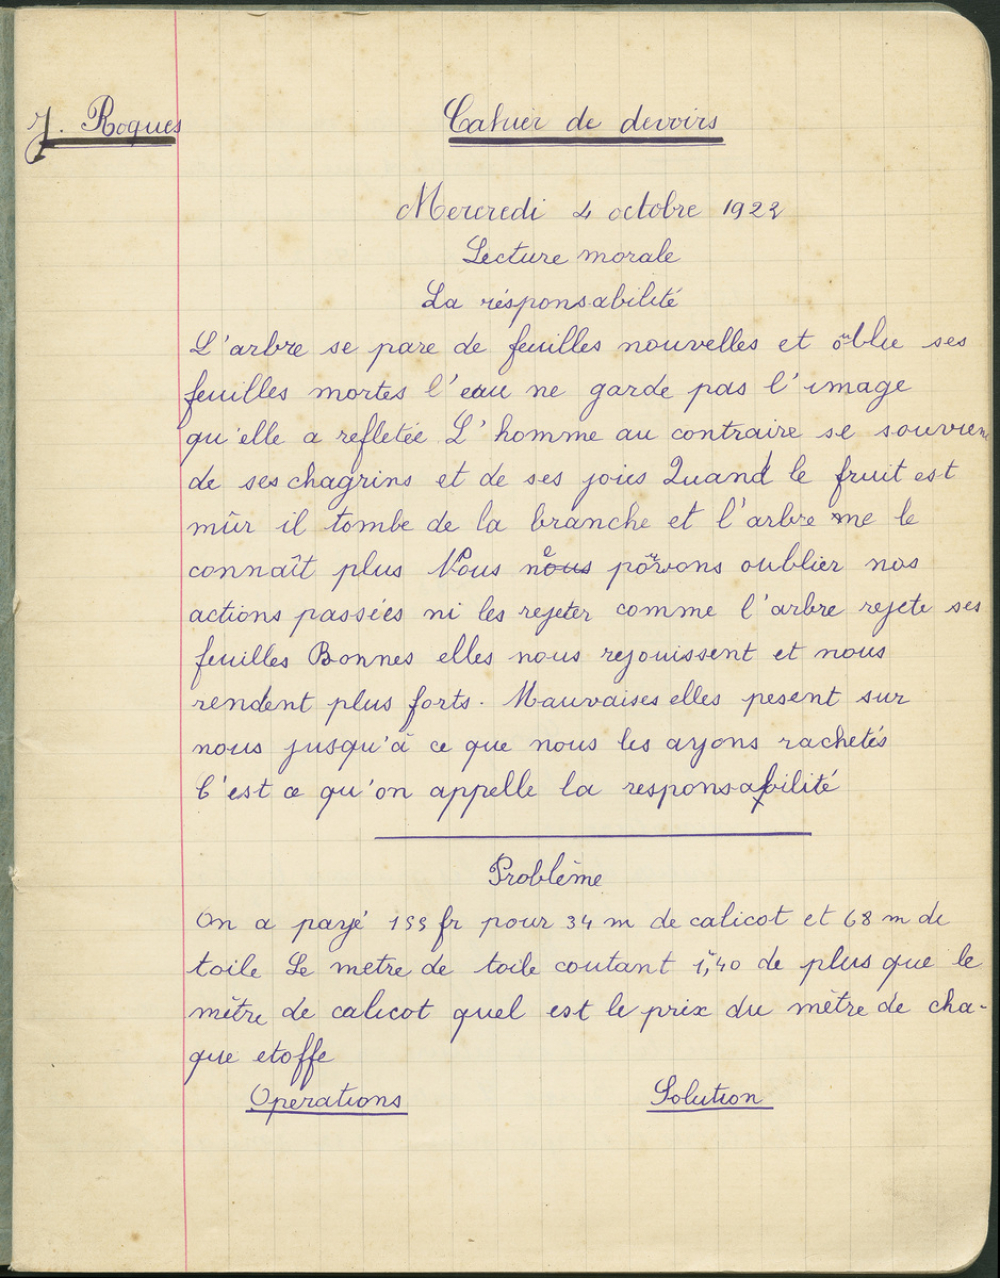 J. Roques
Cahier de devoirs
Mercredi 4 octobre 1922
Lecture morale
La résponsabilité
L'arbre se pare de feuilles nouvelles et oublie ses
feuilles mortes l'eau ne garde pas l'image
qu'elle a refletée L'homme au contraire se souvient
de ses chagrins et de ses joies Quand le fruit est
mûr il tombe de la branche et l'arbre ne le
connaît plus Nous ne pouvons oublier nos
actions passées ni les rejeter comme l'arbre rejete ses
feuilles Bonnes elles nous rejouissent et nous
rendent plus forts. Mauvaises elles pesent sur
nous jusqu'à ce que nous les ayons rachetés
C'est ce qu'on appelle la responsabilité
Problème
On a payé 155 fr pour 34 m de calicot et 68 m de
toile Le metre de toile coutant 1f,40 de plus que le
mètre de calicot quel est le prix du mètre de cha-
que etoffe
Operations
Solution